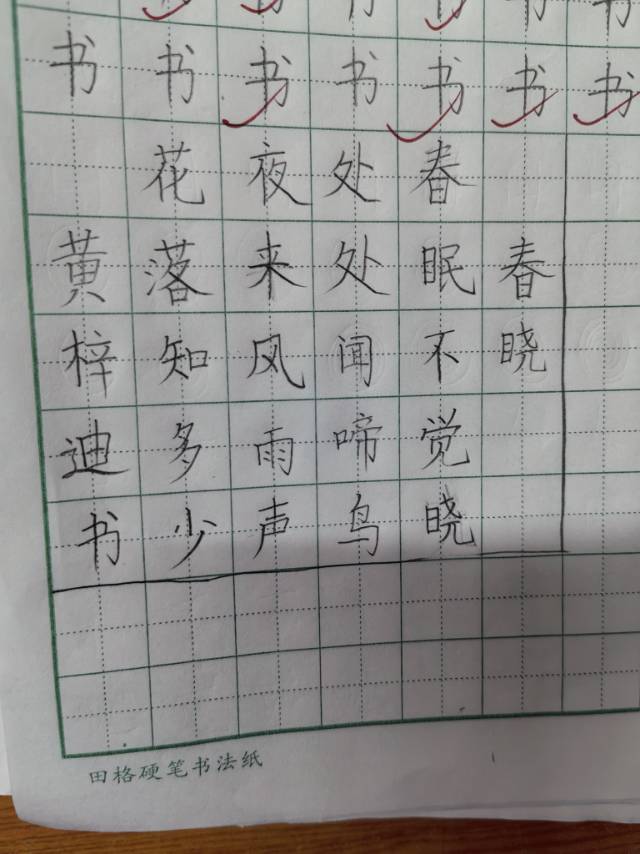 书书书书书书书
春晓
春眠不觉晓
处处闻啼鸟
夜来风雨声
花落知多少
黄梓迪书
田格硬笔书法纸